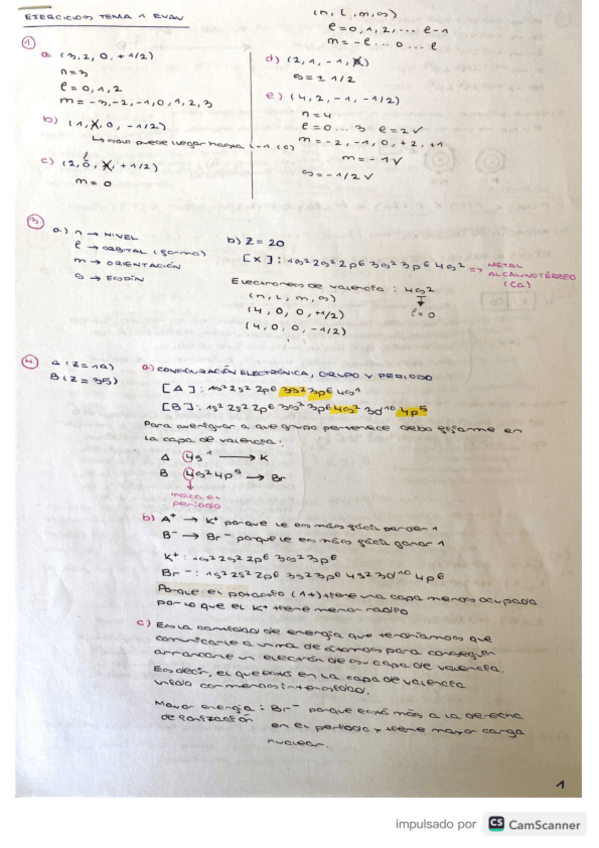 EJERCICIOS TEMA 1 EVAU
(n, l, m, s)
l = 0, 1, 2, ... l-1
m = -l ... 0 ... l
1
a) (3, 2, 0, +1/2)
n = 3
l = 0, 1, 2
m = -3, -2, -1, 0, 1, 2, 3
b) (1, X, 0, -1/2)
↳ solo puede llegar hasta l-1 (0)
c) (2, 0, X, +1/2)
l
m = 0
d) (2, 1, -1, X)
s = ± 1/2
e) (4, 2, -1, -1/2)
n = 4
l = 0 ... 3 l = 2 ✓
m = -2, -1, 0, +2, +1
m = -1 ✓
s = -1/2 ✓
3.
a) n → NIVEL
l → ORBITAL (forma)
m → ORIENTACIÓN
s → ESPÍN
b) Z = 20
[X]: 1s² 2s² 2p⁶ 3s² 3p⁶ 4s² => METAL ALCALINOTÉRREO (Ca)
Electrones de valencia: 4s²
(n, l, m, s) l = 0
(4, 0, 0, +1/2)
(4, 0, 0, -1/2)
4.
A (Z = 19)
B (Z = 35)
a) CONFIGURACIÓN ELECTRÓNICA, GRUPO Y PERIODO
[A]: 1s² 2s² 2p⁶ 3s² 3p⁶ 4s¹
[B]: 1s² 2s² 2p⁶ 3s² 3p⁶ 4s² 3d¹⁰ 4p⁵
Para averiguar a que grupo pertenece debo fijarme en
la capa de valencia:
A 4s¹ → K
B 4s² 4p⁵ → Br
indica el
periodo
b) A⁺ → K⁺ porque le es más fácil perder 1
B⁻ → Br⁻ porque le es más fácil ganar 1
K⁺: 1s² 2s² 2p⁶ 3s² 3p⁶
Br⁻: 1s² 2s² 2p⁶ 3s² 3p⁶ 4s² 3d¹⁰ 4p⁶
Porque el potasio (1+) tiene una capa menos ocupada
por lo que el K⁺ tiene menor radio
c) Es la cantidad de energía que tendríamos que
comunicarle a una de átomos para conseguir
arrancarle un electrón de su capa de valencia.
Es decir, el que está en la capa de valencia
unido con menos intensidad.
Mayor energía: Br⁻ porque está más a la derecha
de ionización en el periodo y tiene mayor carga
nuclear.
1
impulsado por CS CamScanner